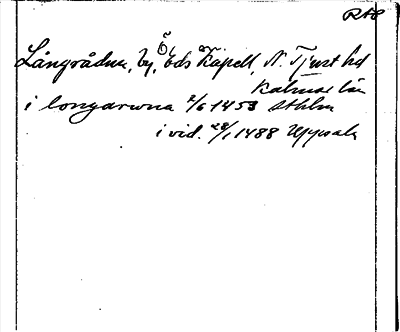 RAÖ
Långrådna, by, Ö. Eds Kapell, N. Tjust hd
Kalmar län
i longarwna 2/6 1453 Sthlm
i vid. 28/1 1488 Uppsala